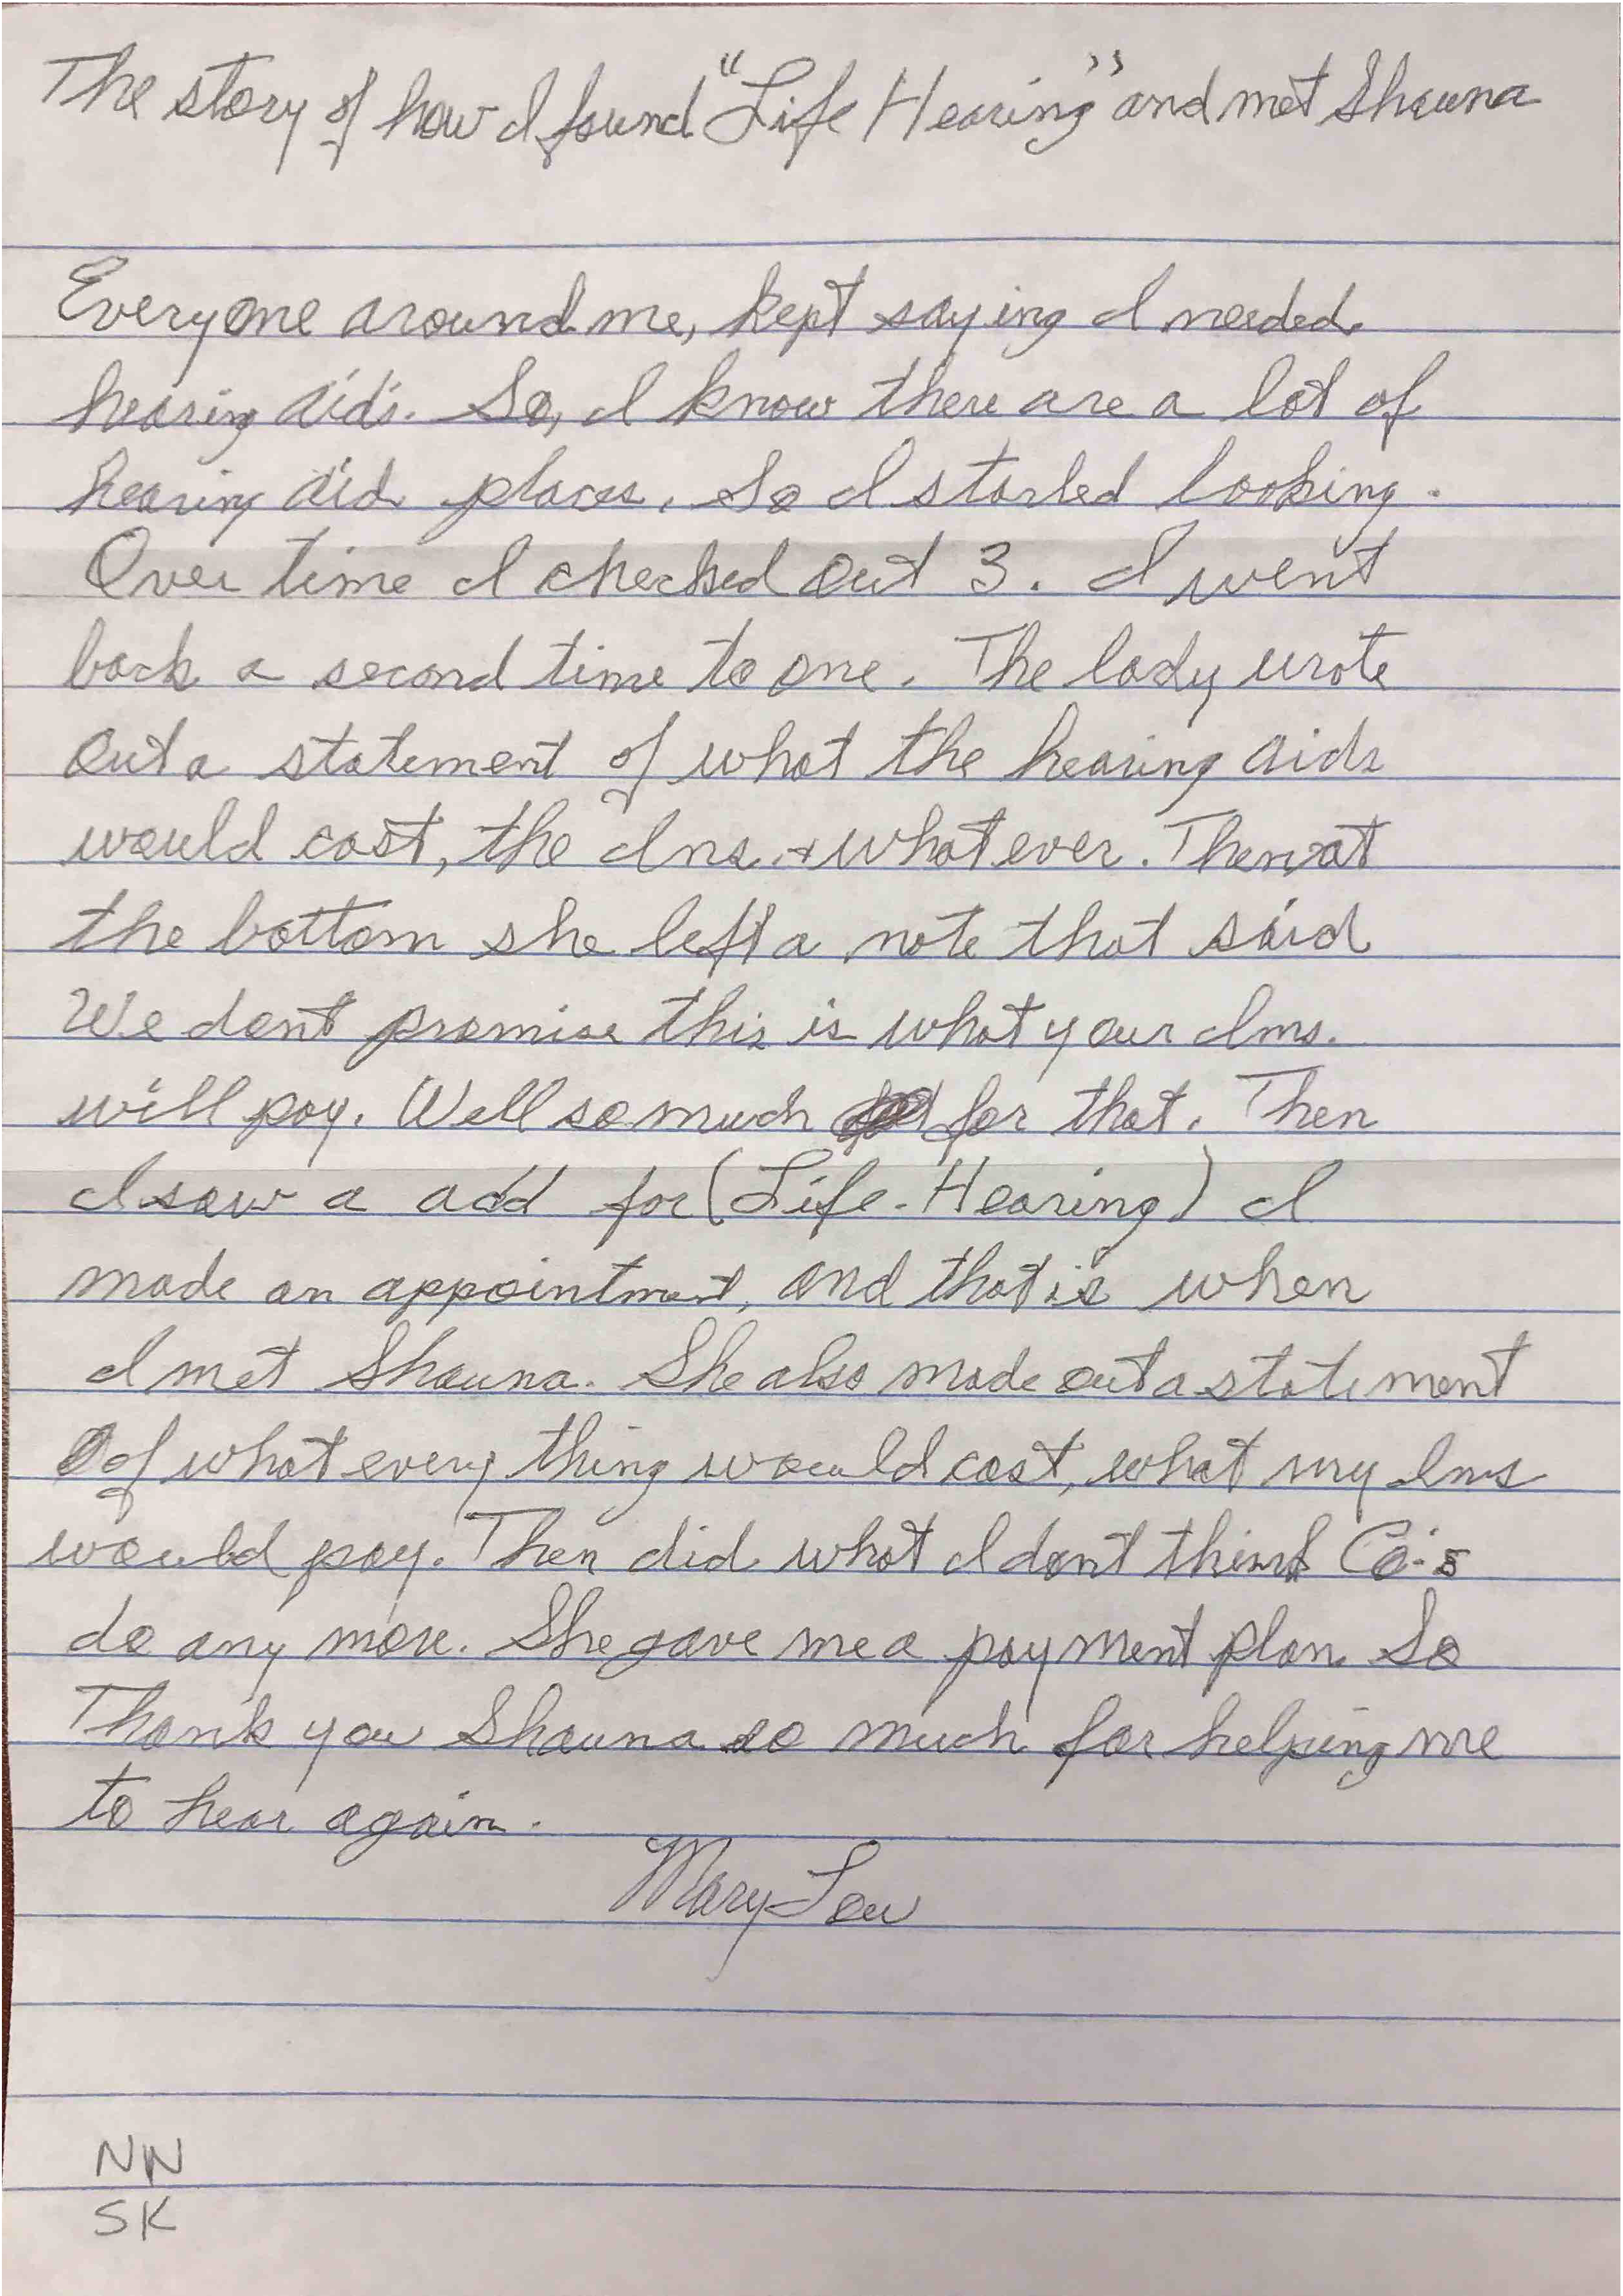 The story of how I found "Life Hearing" and met Shauna
Everyone around me, kept saying I needed
hearing aids. So, I know there are a lot of
hearing aid places. So I started looking.
Over time I checked out 3. I went
back a second time to one. The lady wrote
out a statement of what the hearing aids
would cost, the Ins. & what ever. Then at
the bottom she left a note that said
We dont promise this is what your Ins.
will pay. Well so much for that. Then
I saw a add for (Life-Hearing) I
made an appointment, and that is when
I met Shauna. She also made out a statement
of what every thing would cost, what my Ins
would pay. Then did what I dont think Co's
do any more. She gave me a payment plan. So
Thank you Shauna so much for helping me
to hear again.
Mary Lou
NN
SK